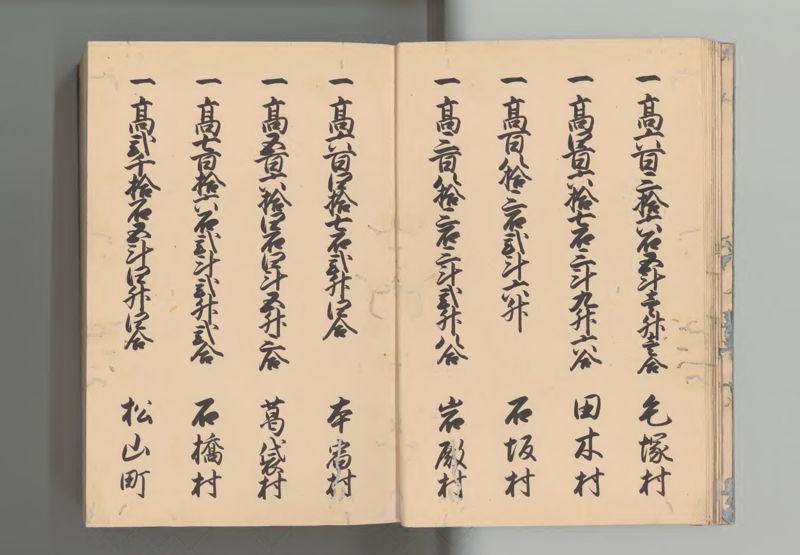 一 高六百三拾六石五斗壱升壱合 毛塚村
一 高四百六拾七石三斗九升六合 田木村
一 高百八拾三石弐斗六升 石坂村
一 高三百八拾三石三斗弐升八合 岩殿村
一 高六百四拾七石弐升四合 本宿村
一 高五百六拾四石四斗五升三合 葛袋村
一 高七百拾六石弐斗弐升弐合 石橋村
一 高弐千拾石五斗四升四合 松山町